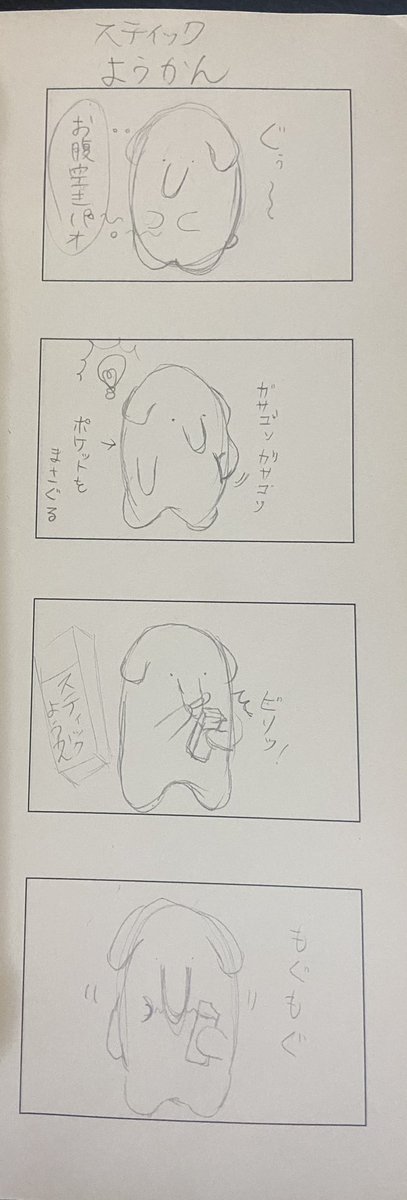 スティック
ようかん
ぐぅ〜〜
お腹空きパオ
ガサゴソガサゴソ
ポケットを
まさぐる
ビリッ!
スティック
ようかん
もぐもぐ